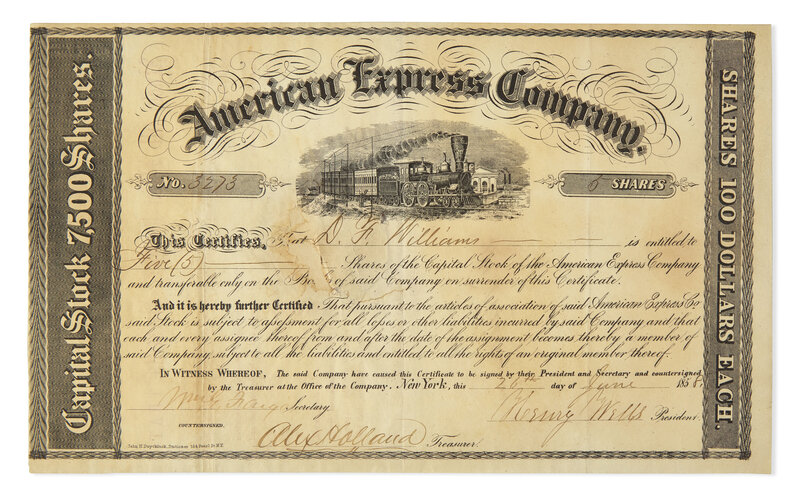 American Express Company.
Capital Stock 7,500 Shares.
SHARES 100 DOLLARS EACH.
No. 3273
5 SHARES
This Certifies, That D. F. Williams is entitled to
Five (5) Shares of the Capital Stock of the American Express Company
and transferable only on the Books of said Company on surrender of this Certificate.
And it is hereby further Certified That pursuant to the articles of association of said American Express Co
said Stock is subject to assessment for all losses or other liabilities incurred by said Company and that
each and every assignee thereof from and after the date of the assignment becomes thereby a member of
said Company, subject to all the liabilities and entitled to all the rights of an original member thereof.
IN WITNESS WHEREOF, The said Company have caused this Certificate to be signed by their President and Secretary and countersigned
by the Treasurer at the Office of the Company. New York, this 26th day of June 1858.
Secretary
Henry Wells President.
COUNTERSIGNED.
Alex Holland Treasurer.